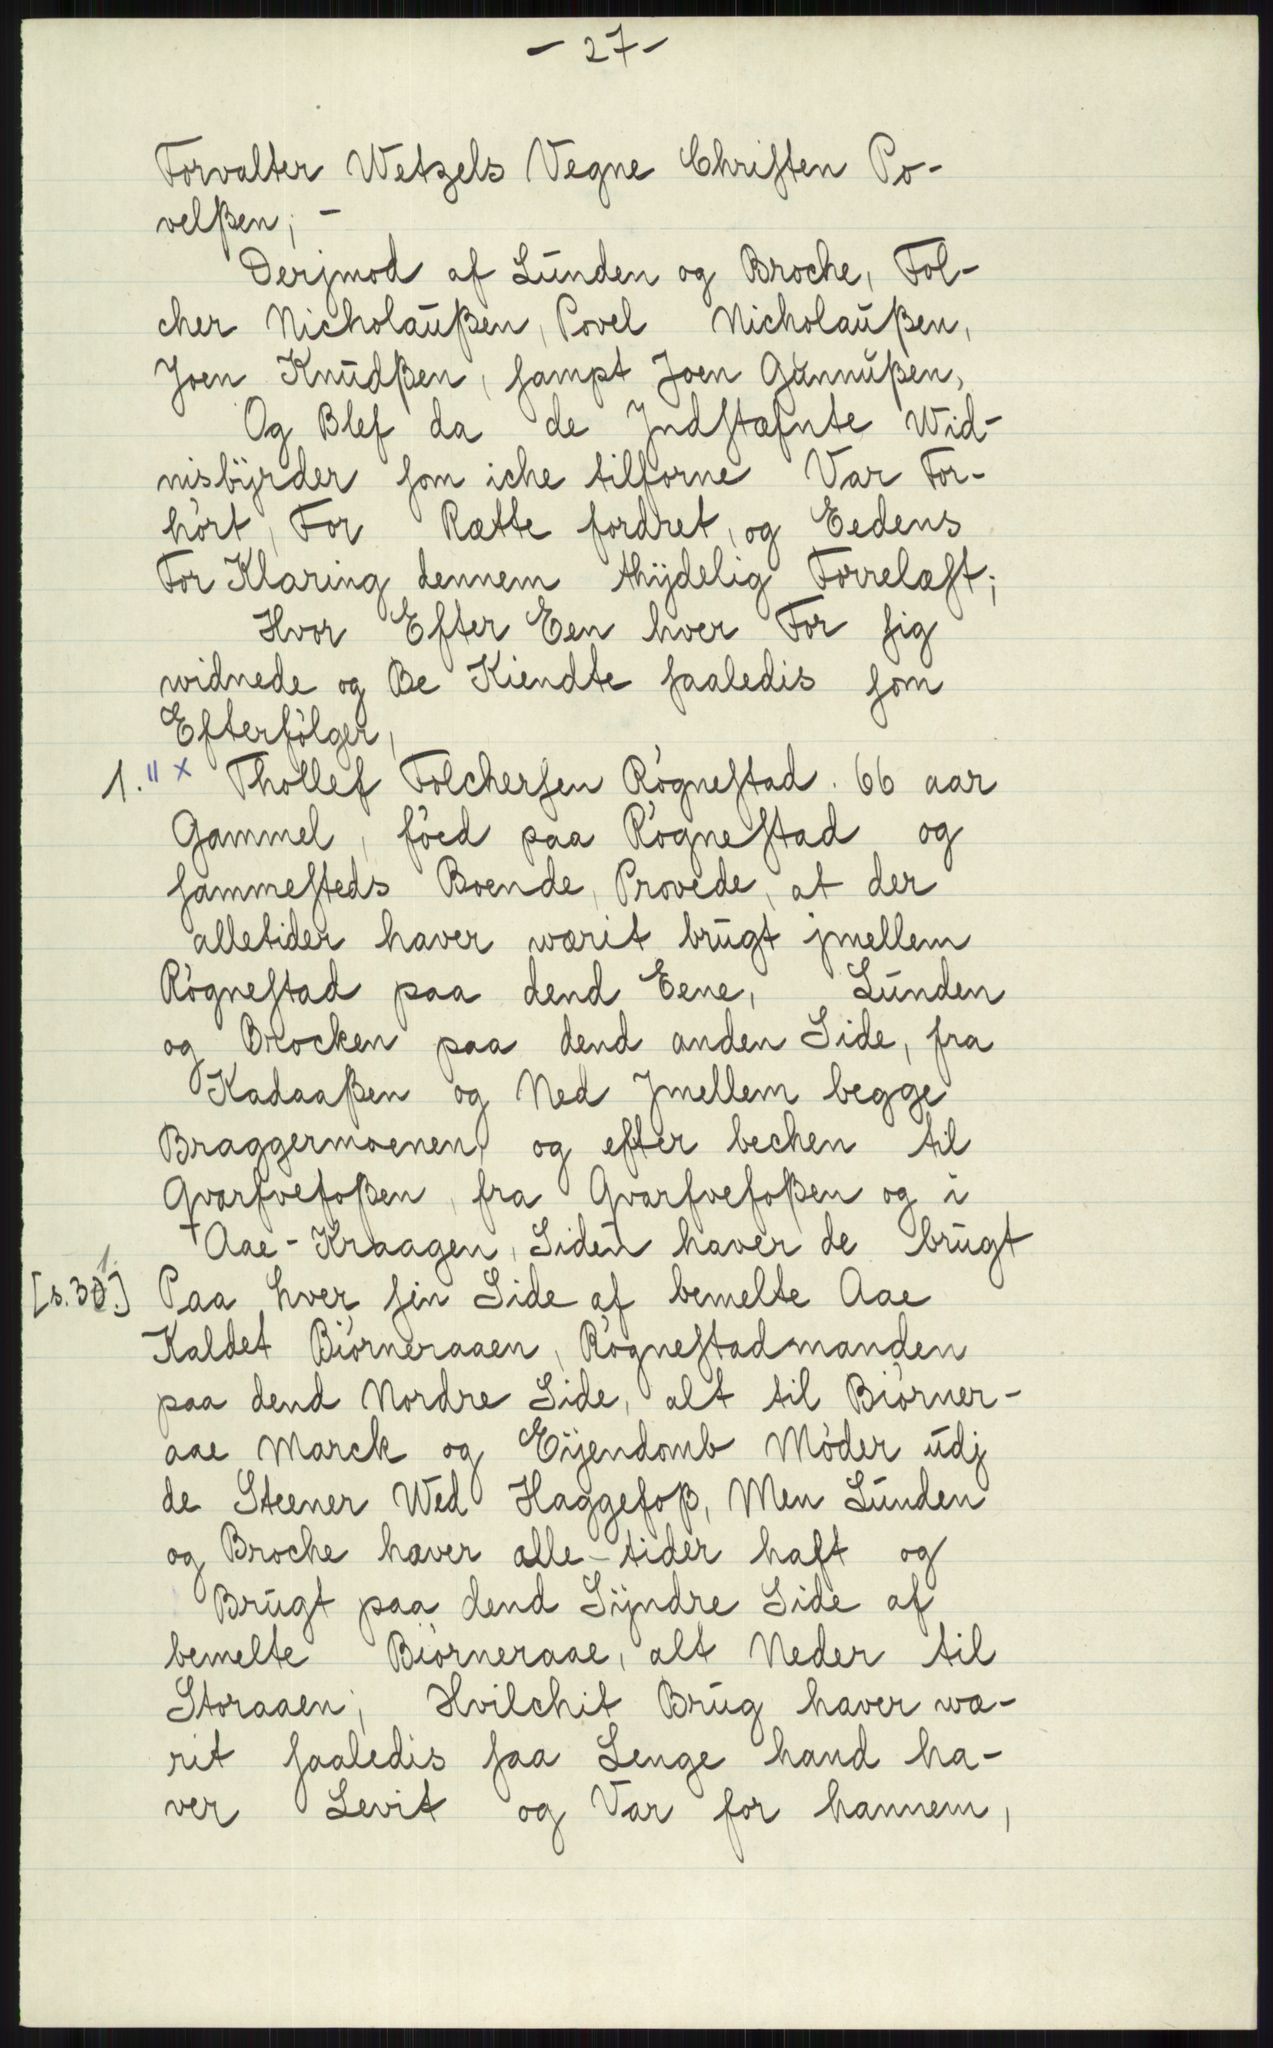 - 27 -
Forvalter Wetzels Vegne Christen Po-
velßen; -
Derjmod af Lunden og Broche, Fol-
cher Nicholaußen, Povel Nicholaußen,
Joen Knudßen, sampt Joen Gunnußen,
Og Blef da de Jndstæfnte Wid-
nisbÿrder som iche tilforne Var For-
hört, For Rætte fordret, og Eedens
For Klaring dennem thÿdelig Forrelæst;
Hvor Efter Een hver For sig
widnede og Be Kiendte saaledis som
Efterfölger,
1. " x Thollef Folchersen Rögnestad. 66 aar
Gammel, föed paa Rögnestad og
sammesteds Boende, Provede, at der
alletider haver wærit brugt jmellem
Rögnestad paa dend Eene, Lunden
og Brocken paa dend anden Side, fra
Kadaaßen og Ned Jmellem begge
Braggermoenen og efter bechen til
Qvarfvefoßen, fra Qvarfvefoßen og i
Aae-Kraagen, Siden haver de brugt
[s. 31.] Paa hver sin Side af bemelte Aae
Kaldet Biörneraaen, Rögnestadmanden
paa dend Nordre Side, alt til Biörner-
aae Marck og Eÿendomb Möder udj
de Steener Wed Haggefoß, Men Lunden
og Broche haver alle-tider haft og
Brugt paa dend Sÿndre Side af
bemelte Biörneraae, alt Neder til
Storaaen; Hvilchit Brug haver wæ-
rit saaledis saa Lenge hand ha-
ver Levit og Var for hannem,